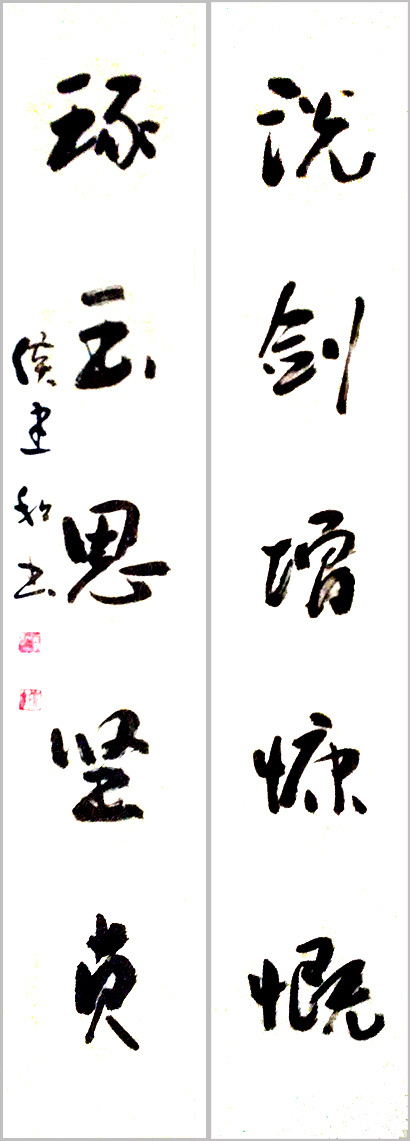 洗剑增慷慨
琢玉思坚贞
侯建和书